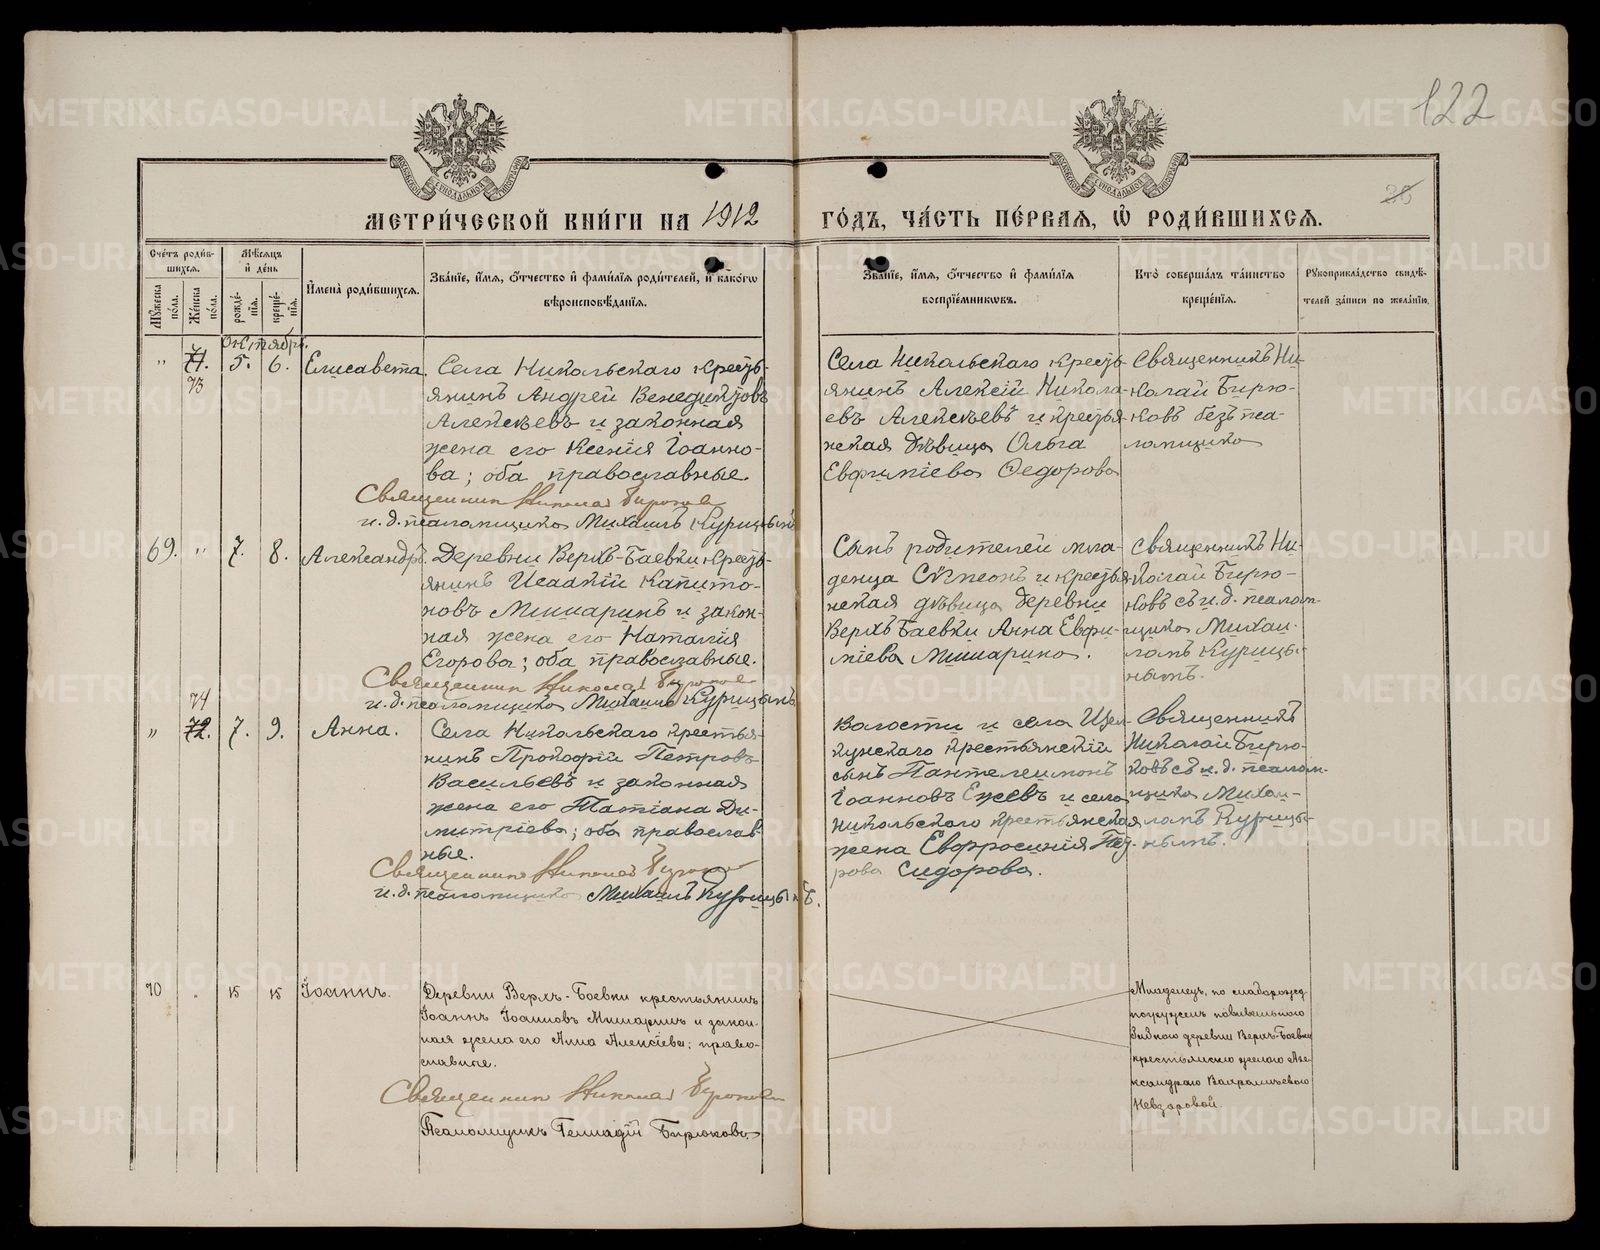 122
38
МЕТРИ́ЧЕСКОЙ КНИ́ГИ НА 1912
ГО́ДЪ, ЧА́СТЬ ПЕ́РВАЯ, Ѽ РОДИ́ВШИХСЯ.
Сче́тъ роди́вшихся.
Му́жеска по́ла.
Же́нска по́ла.
Мѣ́сяцъ и де́нь
рожде́нїя.
креще́нїя.
И҆мена̀ роди́вшихся.
Зва́нїе, и҆́мя, ѻ҆́тчество и҆ фами́лїа роди́телей, и҆ како́гѡ
вѣроисповѣ́данїя.
Зва́нїе, и҆́мя, ѻ҆́тчество и҆ фами́лїа
воспрїе́мниковъ.
Кто̀ соверша́лъ та́инство
креще́нїя.
Рꙋкоприкла́дство свидѣ́-
телей за́писи по жела́нїю.
Октябрь.
„ 71. 5. 6. Елисавета.
73
Села Никольскаго кресть-
янинъ Андрей Венедиктовъ
Алексѣевъ и законная
жена его Ксенія Іоанно-
ва; оба православные.
Священник Николай Бирюков
и. д. псаломщика Михаилъ Курицынъ
Села Никольскаго кресть-
янинъ Алексій Никола-
евъ Алексѣевъ и крестья-
нская дѣвица Ольга
Евфиміева Ѳедорова
Священникъ Ни-
колай Бирю-
ковъ безъ пса-
ломщика
69. „ 7. 8. Александръ.
Деревни Верхъ-Баевки кресть-
янинъ Исаакій Капито-
новъ Мишаринъ и закон-
ная жена его Наталія
Егорова; оба православные.
Священник Николай Бирюков
и. д. псаломщика Михаилъ Курицынъ
Сынъ родителей мла-
денца Сѵмеонъ и крестья-
нская дѣвица деревни
Верхъ Баевки Анна Евфи-
міева Мишарина.
Священникъ Ни-
колай Бирю-
ковъ съ и. д. псалом-
щика Михаи-
ломъ Курицы-
нымъ.
74
„ 72. 7. 9. Анна.
Села Никольскаго крестья-
нинъ Прокофій Петровъ
Васильевъ и законная
жена его Татіана Ди-
митріева; оба православ-
ные.
Священник Николай Бирюков
и. д. псаломщика Михаилъ Курицынъ.
Волости и села Щел-
кунскаго крестьянскій
сынъ Пантелеимонъ
Іоанновъ Ежевъ и села
Никольскаго крестьянская
жена Евфросинія Пет-
рова Сидорова.
Священникъ
Николай Бирю-
ковъ съ и. д. псалом-
щика Михаи-
ломъ Курицы-
нымъ.
70 „ 15 15 Іоаннъ.
Деревни Верхъ-Боевки крестьянинъ
Іоаннъ Іоанновъ Мишаринъ и закон-
ная жена его Анна Алексіева; право-
славные.
Священник Николай Бирюков
Псаломщикъ Геннадій Бирюковъ
Младенецъ, по слаборожд.
погруженъ повивальною
бабкою деревни Верхъ-Боевки
крестьянскою женою Але-
ксандрою
Невзоровой.